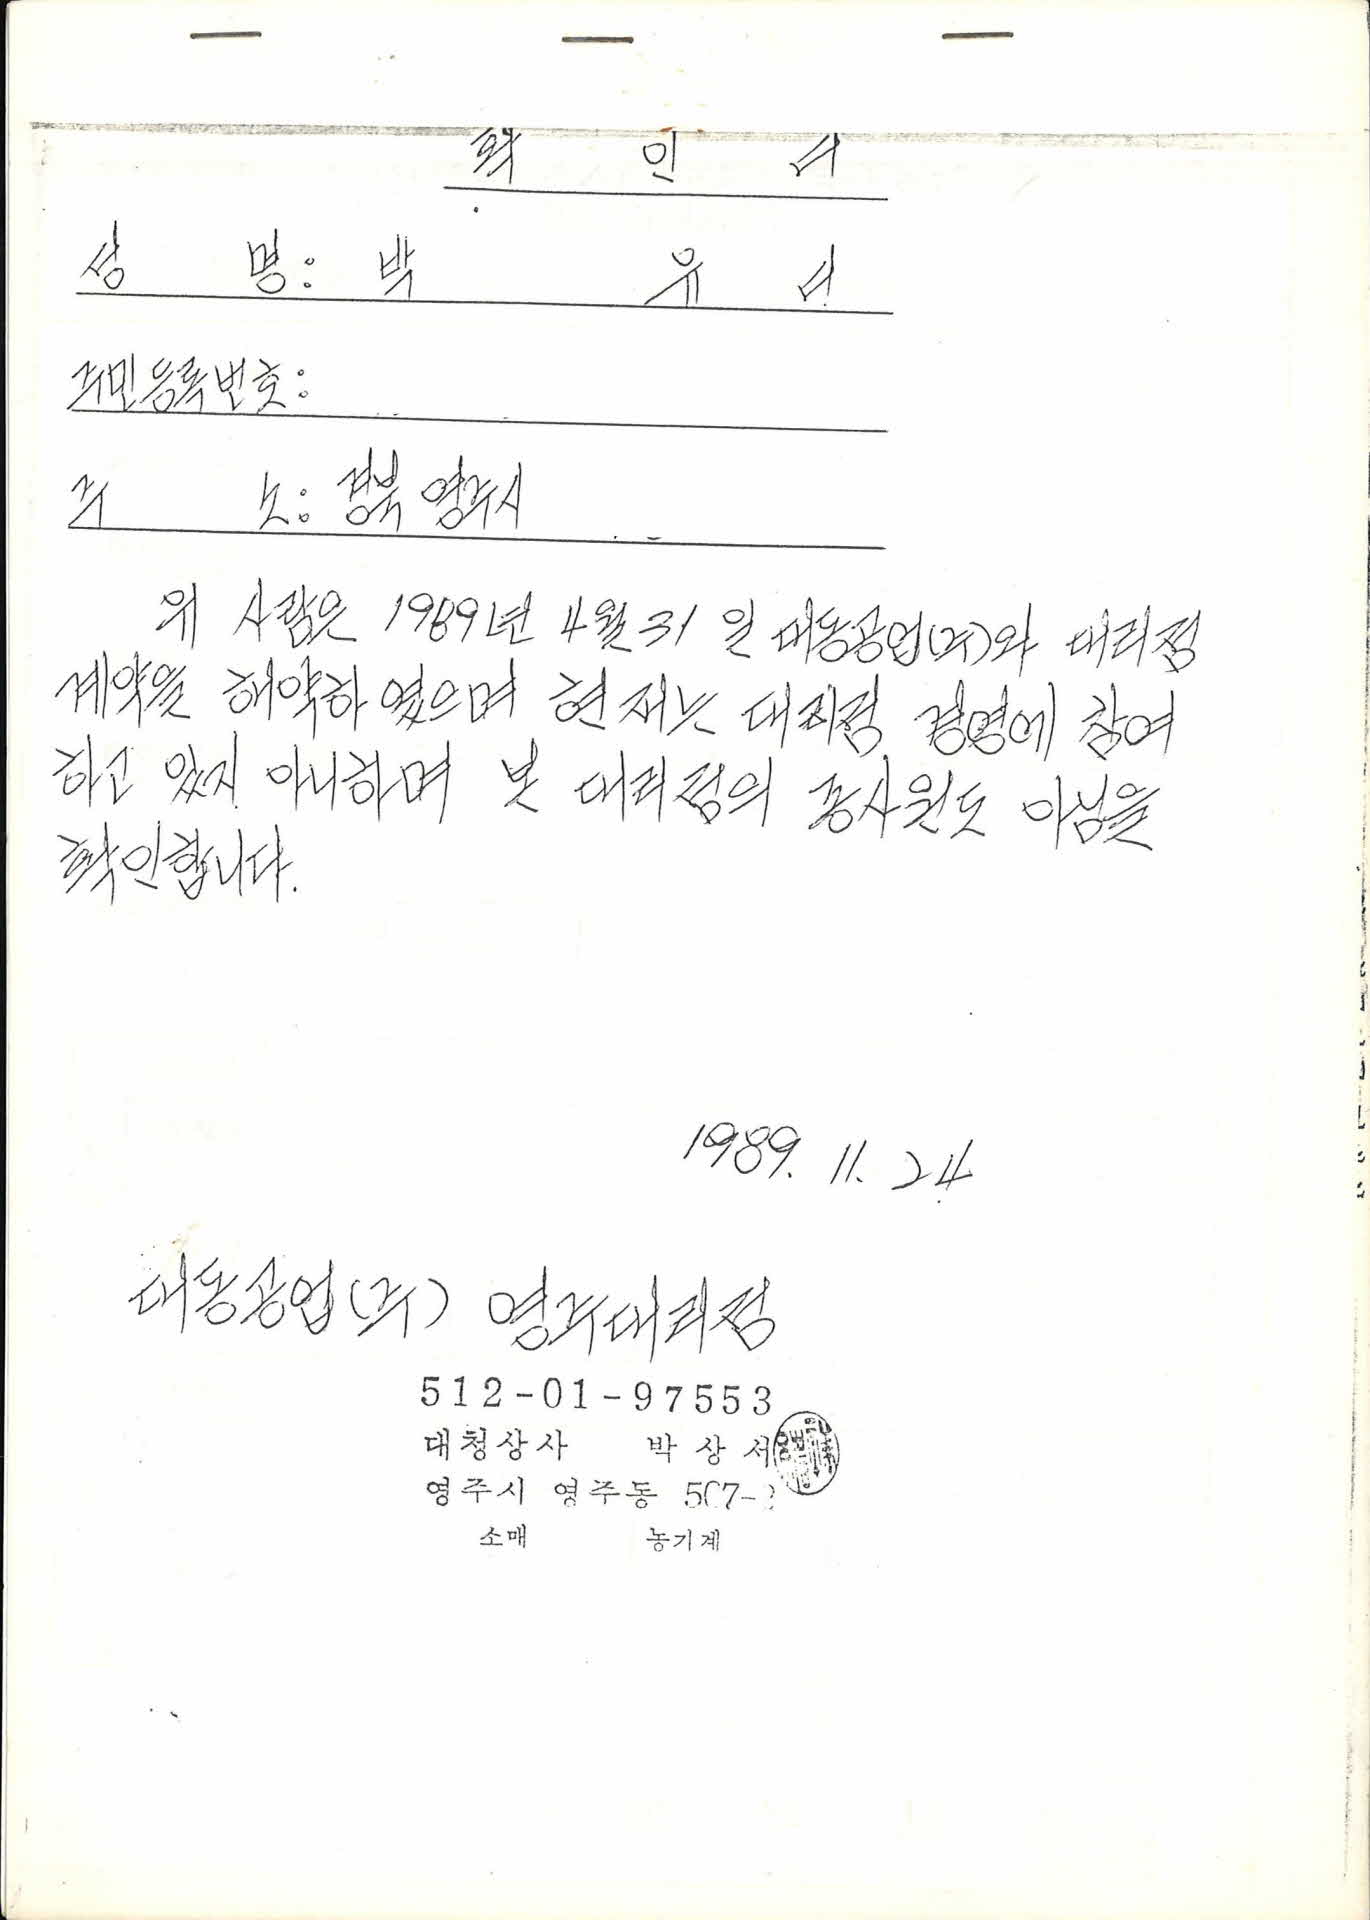 확 인 서
성 명: 박 유 서
주민등록번호:
주 소: 경북 영주시
위 사람은 1989년 4월 31일 대동공업(주)와 대리점
계약을 해약하였으며 현재는 대리점 경영에 참여
하고 있지 아니하며 본 대리점의 종사원도 아님을
확인합니다.
1989. 11. 24
대동공업(주) 영주대리점
512-01-97553
대청상사 박상서
영주시 영주동 507-
소매 농기계